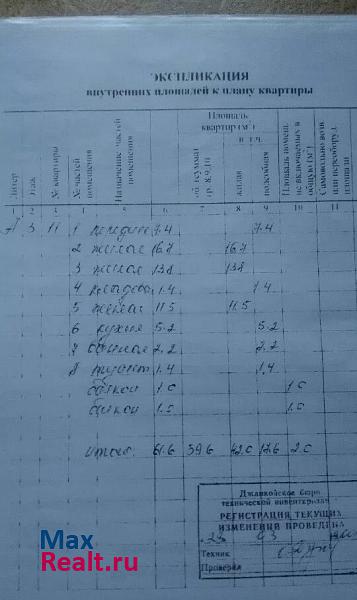 ЭКСПЛИКАЦИЯ
внутренних площадей к плану квартиры
Литер
Этаж
№ квартиры
№ частей помещения
Назначение частей помещения
Площадь квартир (м²)
в т. ч.
жилая
подсобная
Площадь помещ. не включаемых в общую (м²)
1 2 3 4 5 6 8 9 10 11
А 3 11 1 7.4 7.4
2 жилая 16.7 16.7
3 жилая 13.8 13.8
4 кладова 1.4 1.4
5 жилая 11.5 11.5
6 кухня 5.2 5.2
7 ванная 2.2 2.2
8 туалет 1.4 1.4
балкон 1.0 1.0
балкон 1.0 1.0
итого: 61.6 59.6 42.0 17.6 2.0
Джанкойское бюро
технической инвентаризации
РЕГИСТРАЦИЯ ТЕКУЩИХ
ИЗМЕНЕНИЙ ПРОВЕДЕНА
Техник
Проверил
Max
Realt.ru